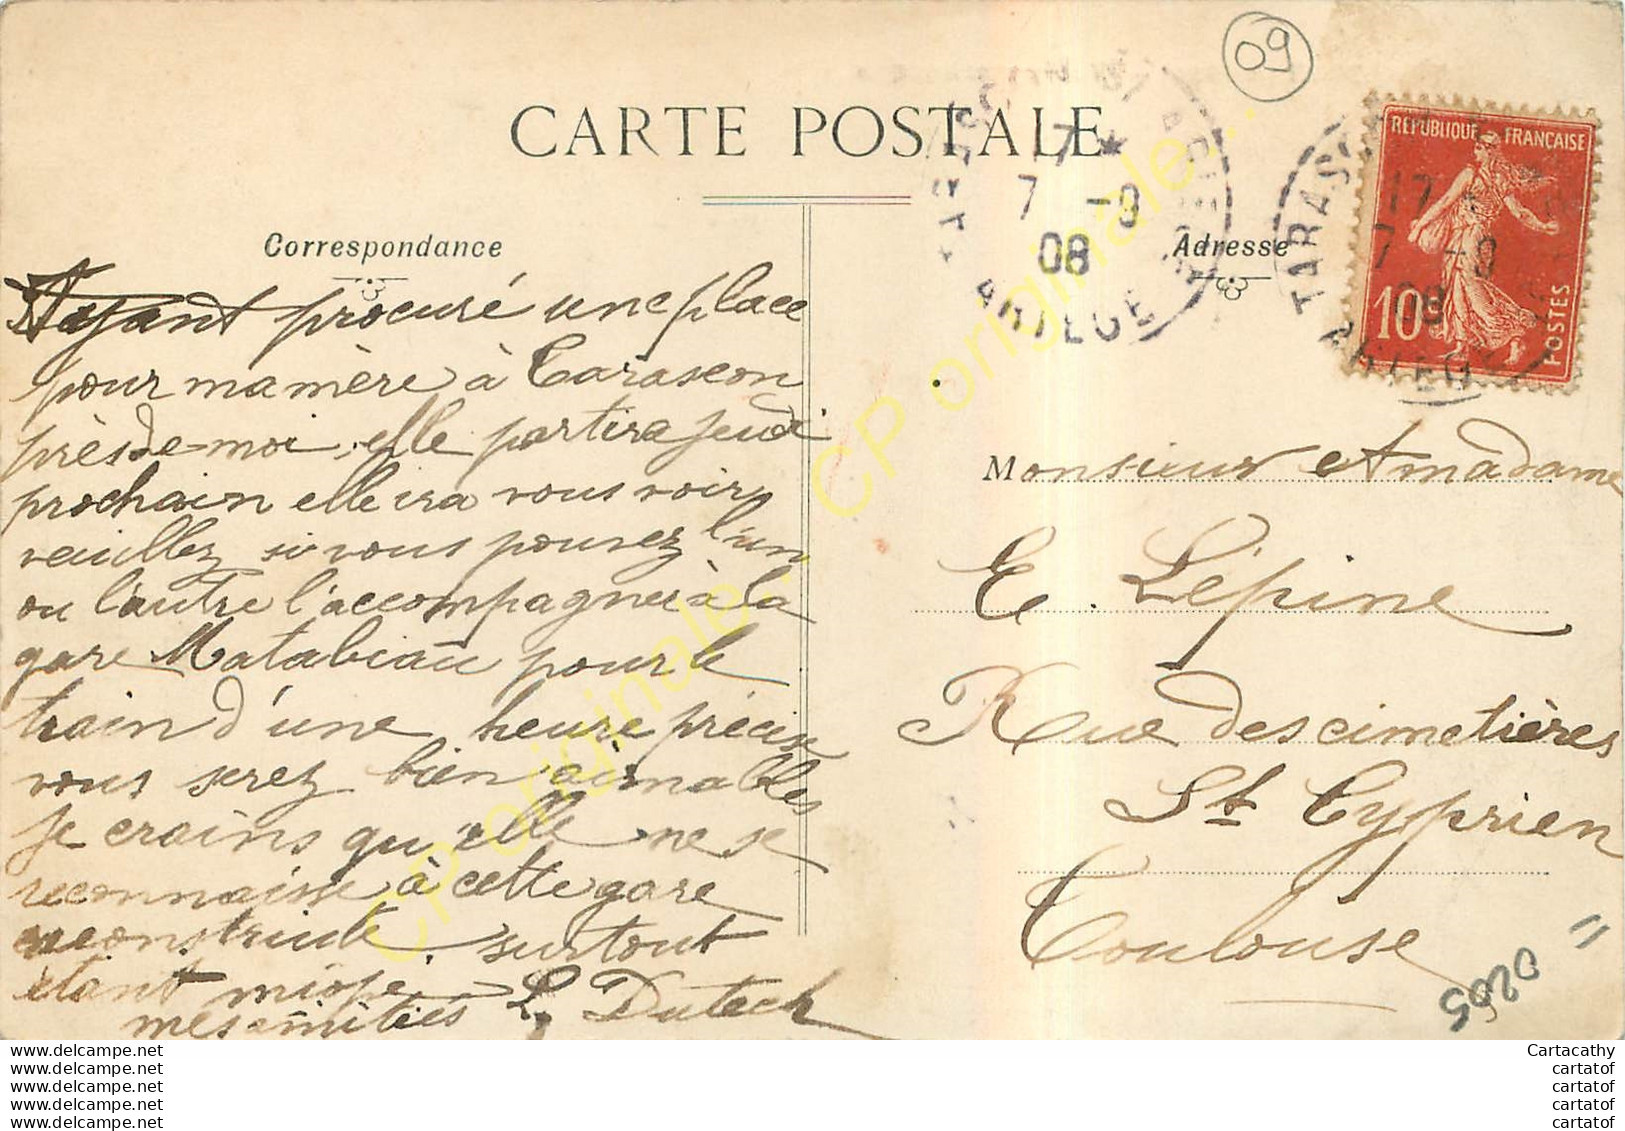 09
CARTE POSTALE
Correspondance
Ayant procuré une place
pour ma mère à Tarascon
près de moi, elle partira jeudi
prochain elle ira vous voir
veuillez si vous pouvez l'un
ou l'autre l'accompagner à la
gare Matabiau pour le
train d'une heure précise
vous serez bien aimables
je crains qu'elle ne se
reconnaisse à cette gare
reconstruite, surtout
étant miope.
mes amitiés L. Dutech
TARASCON
7 *
7 -9
08
ARIEGE
Adresse
TARASCON
17
7 -9
08
ARIEGE
REPUBLIQUE FRANÇAISE
10
POSTES
Monsieur et madame
E. Lépine
Rue des cimetières
St Cyprien
Toulouse
0205
CP originale
CP originale...
www.delcampe.net
www.delcampe.net
www.delcampe.net
www.delcampe.net
www.delcampe.net
Cartacathy
cartatof
cartatof
cartatof
cartatof